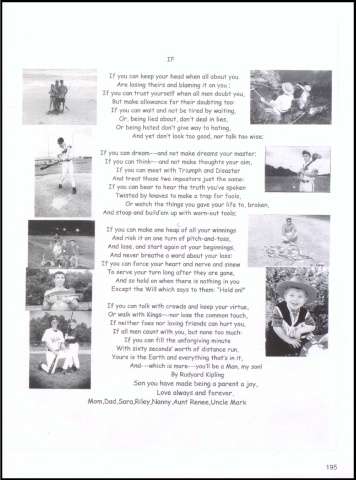 IF
If you can keep your head when all about you
Are losing theirs and blaming it on you;
If you can trust yourself when all men doubt you,
But make allowance for their doubting too:
If you can wait and not be tired by waiting,
Or, being lied about, don't deal in lies,
Or being hated don't give way to hating,
And yet don't look too good, nor talk too wise;
If you can dream---and not make dreams your master;
If you can think---and not make thoughts your aim,
If you can meet with Triumph and Disaster
And treat those two impostors just the same:
If you can bear to hear the truth you've spoken
Twisted by knaves to make a trap for fools,
Or watch the things you gave your life to, broken,
And stoop and build'em up with worn-out tools;
If you can make one heap of all your winnings
And risk it on one turn of pitch-and-toss,
And lose, and start again at your beginnings,
And never breathe a word about your loss:
If you can force your heart and nerve and sinew
To serve your turn long after they are gone,
And so hold on when there is nothing in you
Except the Will which says to them: "Hold on!"
If you can talk with crowds and keep your virtue,
Or walk with Kings---nor lose the common touch,
If neither foes nor loving friends can hurt you,
If all men count with you, but none too much:
If you can fill the unforgiving minute
With sixty seconds' worth of distance run,
Yours is the Earth and everything that's in it,
And---which is more---you'll be a Man, my son!
By Rudyard Kipling
Son you have made being a parent a joy,
Love always and forever,
Mom,Dad,Sara,Riley,Nanny,Aunt Renee,Uncle Mark
195